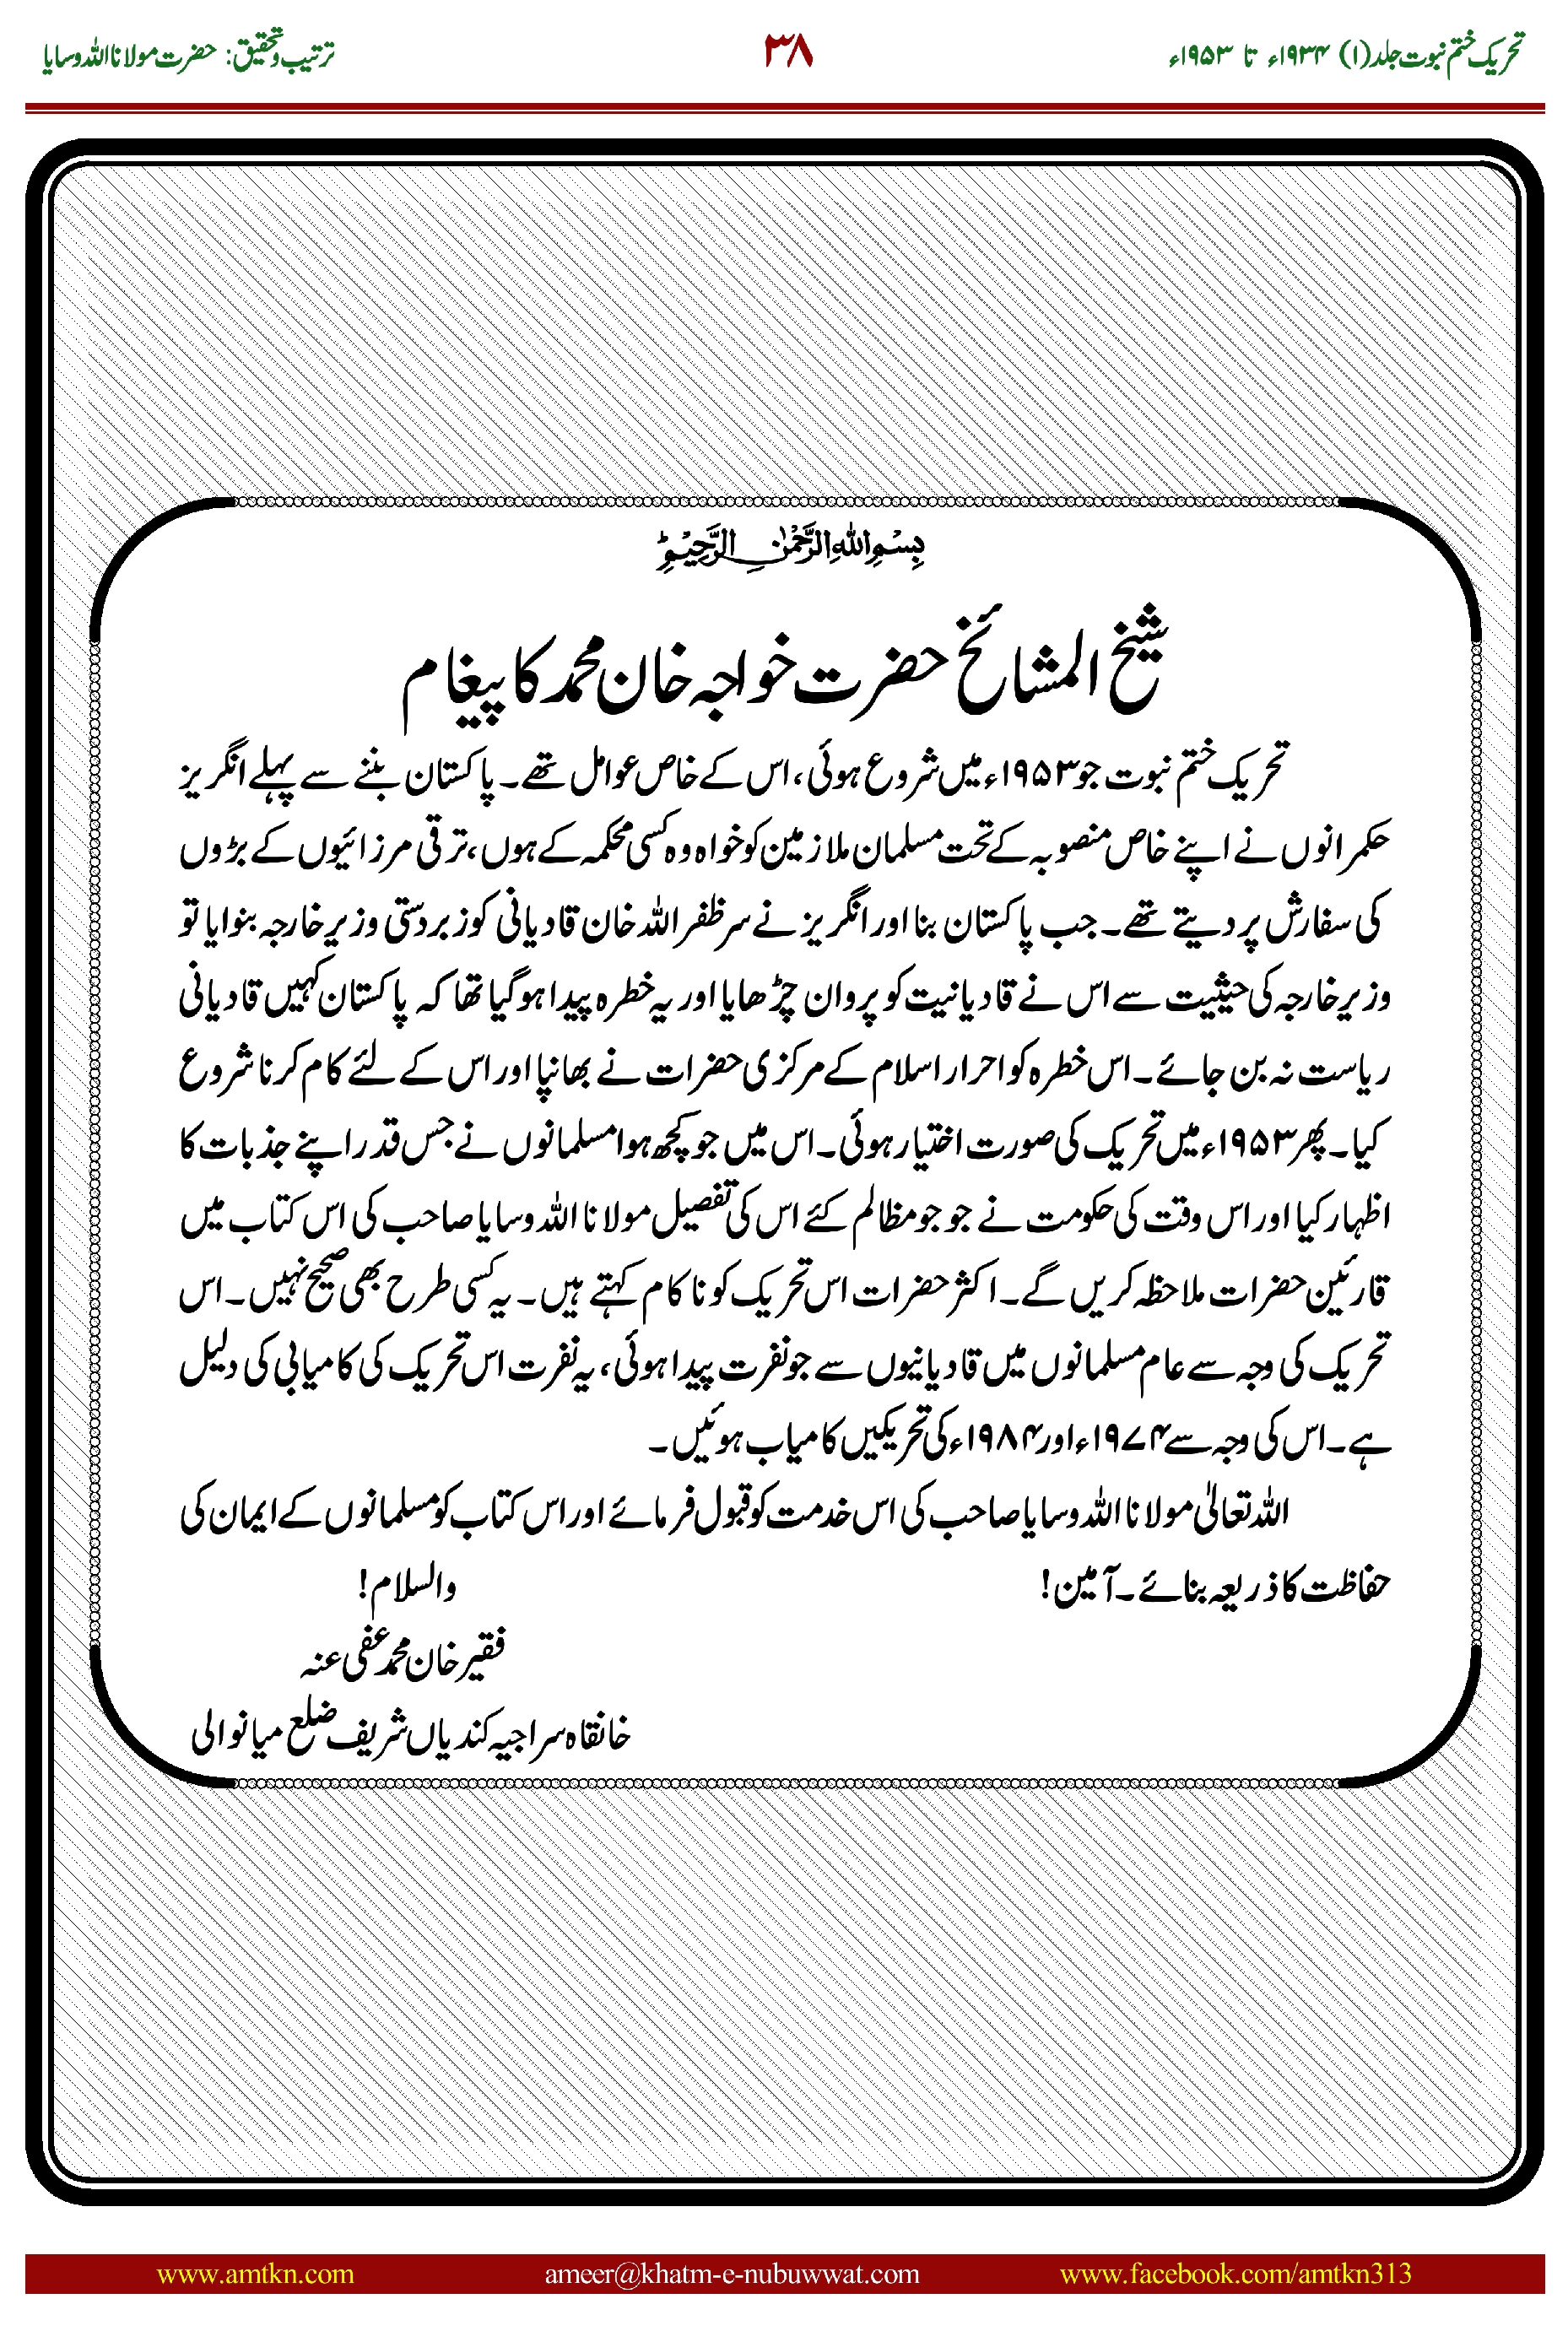 تحریک ختم نبوت جلد(۱) ۱۹۳۴ء تا ۱۹۵۳ء
۳۸
ترتیب وتحقیق: حضرت مولانا اللہ وسایا
بِسْمِ اللہِ الرَّحْمٰنِ الرَّحِیْمِ
شیخ المشائخ حضرت خواجہ خان محمد کا پیغام
تحریک ختم نبوت جو ۱۹۵۳ء میں شروع ہوئی، اس کے خاص عوامل تھے۔ پاکستان بننے سے پہلے انگریز
حکمرانوں نے اپنے خاص منصوبہ کے تحت مسلمان ملازمین کو خواہ وہ کسی محکمہ کے ہوں، ترقی مرزائیوں کے بڑوں
کی سفارش پر دیتے تھے۔ جب پاکستان بنا اور انگریز نے سر ظفر اللہ خان قادیانی کو زبردستی وزیر خارجہ بنوایا تو
وزیر خارجہ کی حیثیت سے اس نے قادیانیت کو پروان چڑھایا اور یہ خطرہ پیدا ہوگیا تھا کہ پاکستان کہیں قادیانی
ریاست نہ بن جائے۔ اس خطرہ کو احرار اسلام کے مرکزی حضرات نے بھانپا اور اس کے لئے کام کرنا شروع
کیا۔ پھر ۱۹۵۳ء میں تحریک کی صورت اختیار ہوئی۔ اس میں جو کچھ ہوا مسلمانوں نے جس قدر اپنے جذبات کا
اظہار کیا اور اس وقت کی حکومت نے جو جو مظالم کئے اس کی تفصیل مولانا اللہ وسایا صاحب کی اس کتاب میں
قارئین حضرات ملاحظہ کریں گے۔ اکثر حضرات اس تحریک کو ناکام کہتے ہیں۔ یہ کسی طرح بھی صحیح نہیں۔ اس
تحریک کی وجہ سے عام مسلمانوں میں قادیانیوں سے جو نفرت پیدا ہوئی، یہ نفرت اس تحریک کی کامیابی کی دلیل
ہے۔ اس کی وجہ سے ۱۹۷۴ء اور ۱۹۸۴ء کی تحریکیں کامیاب ہوئیں۔
اللہ تعالیٰ مولانا اللہ وسایا صاحب کی اس خدمت کو قبول فرمائے اور اس کتاب کو مسلمانوں کے ایمان کی
حفاظت کا ذریعہ بنائے۔ آمین! والسلام!
فقیر خان محمد عفی عنہ
خانقاہ سراجیہ کندیاں شریف ضلع میانوالی
www.amtkn.com ameer@khatm-e-nubuwwat.com www.facebook.com/amtkn313